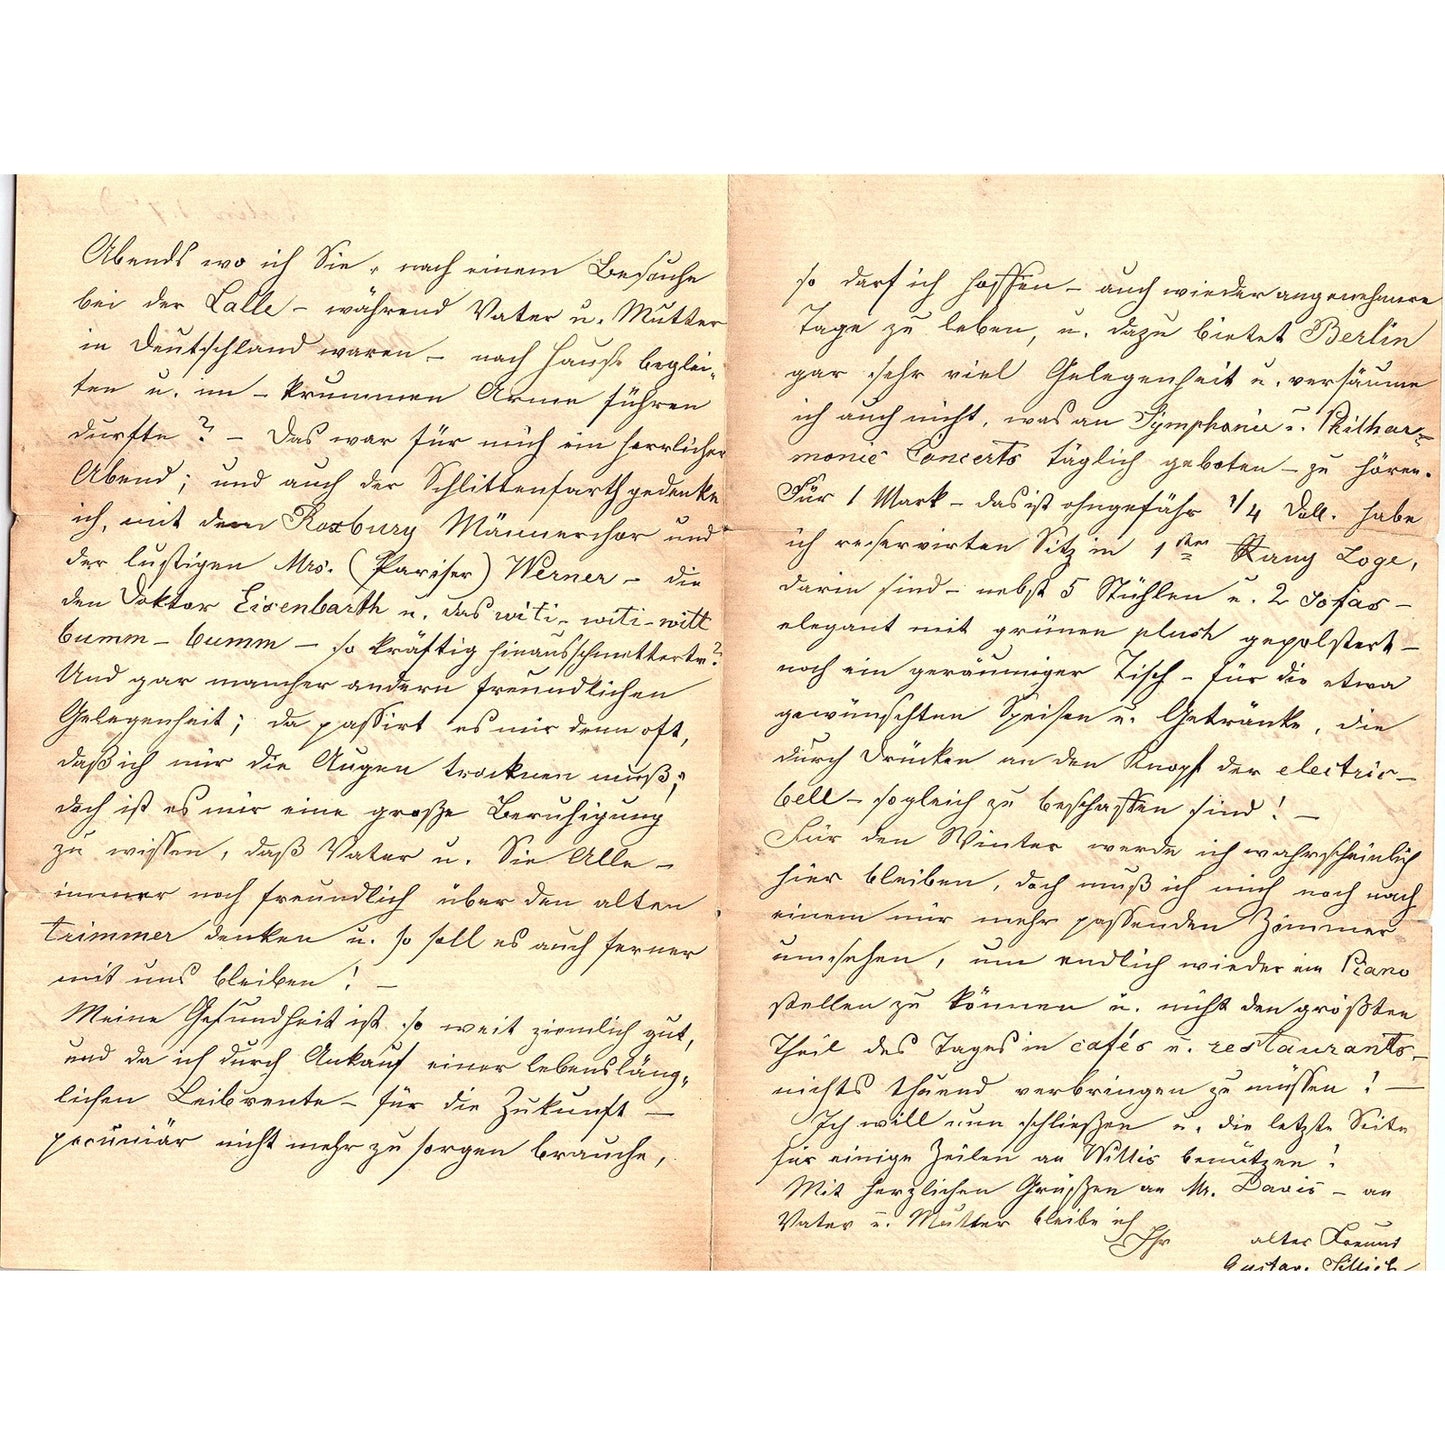 Abends wo ich Sie, nach einem Besuche
bei der Lalle – während Vater u. Mutter
in Deutschland waren – nach Hause beglei-
ten u. im – krummen Arme führen
durfte? – Das war für mich ein herrlicher
Abend; und auch der Schlittenfarth gedenke
ich, mit dem Roxbury Männerchor und
der lustigen Mrs. (Pariser) Werner – die
den Doktor Eisenbarth u. das witi- witi- witt
bumm – bumm – so kräftig hinausschmetterte?
Und gar mancher andern freundlichen
Gelegenheit; da passirt es mir denn oft,
daß ich mir die Augen trocknen muß;
doch ist es mir eine große Beruhigung
zu wissen, daß Vater u. Sie Alle –
immer noch freundlich über den alten
Trimmer denken u. so soll es auch ferner
mit uns bleiben! –
Meine Gesundheit ist so weit ziemlich gut,
und da ich durch Ankauf einer lebensläng-
lichen Leibrente – für die Zukunft –
pecuniär nicht mehr zu sorgen brauche,
so darf ich hoffen – auch wieder angenehmere
Tage zu leben, u. dazu bietet Berlin
gar sehr viel Gelegenheit u. versäume
ich auch nicht, was an Symphonie u. Philhar-
monic Concerts täglich geboten – zu hören.
Für 1 Mark – das ist ohngefähr 1/4 Doll. habe
ich reservirten Sitz in 1ster Rang Loge,
darin sind – nebst 5 Stühlen u. 2 Sofas –
elegant mit grünen plush gepolstert –
noch ein geräumiger Tisch – für die etwa
gewünschten Speisen u. Getränke, die
durch Drücken an den Knopf der electric-
bell – sogleich zu beschaffen sind! –
Für den Winter werde ich wahrscheinlich
hier bleiben, doch muß ich mich noch nach
einem mir mehr passenden Zimmer
umsehen, um endlich wieder ein Piano
stellen zu können u. nicht den größten
Theil des Tages in cafés u. restaurants –
nichts thuend verbringen zu müssen! –
Ich will nun schließen u. die letzte Seite
für einige Zeilen an Willis benützen!
Mit herzlichen Grüßen an Mr. Davis – an
Vater u. Mutter bleibe ich
Ihr alter Freund
Gustav